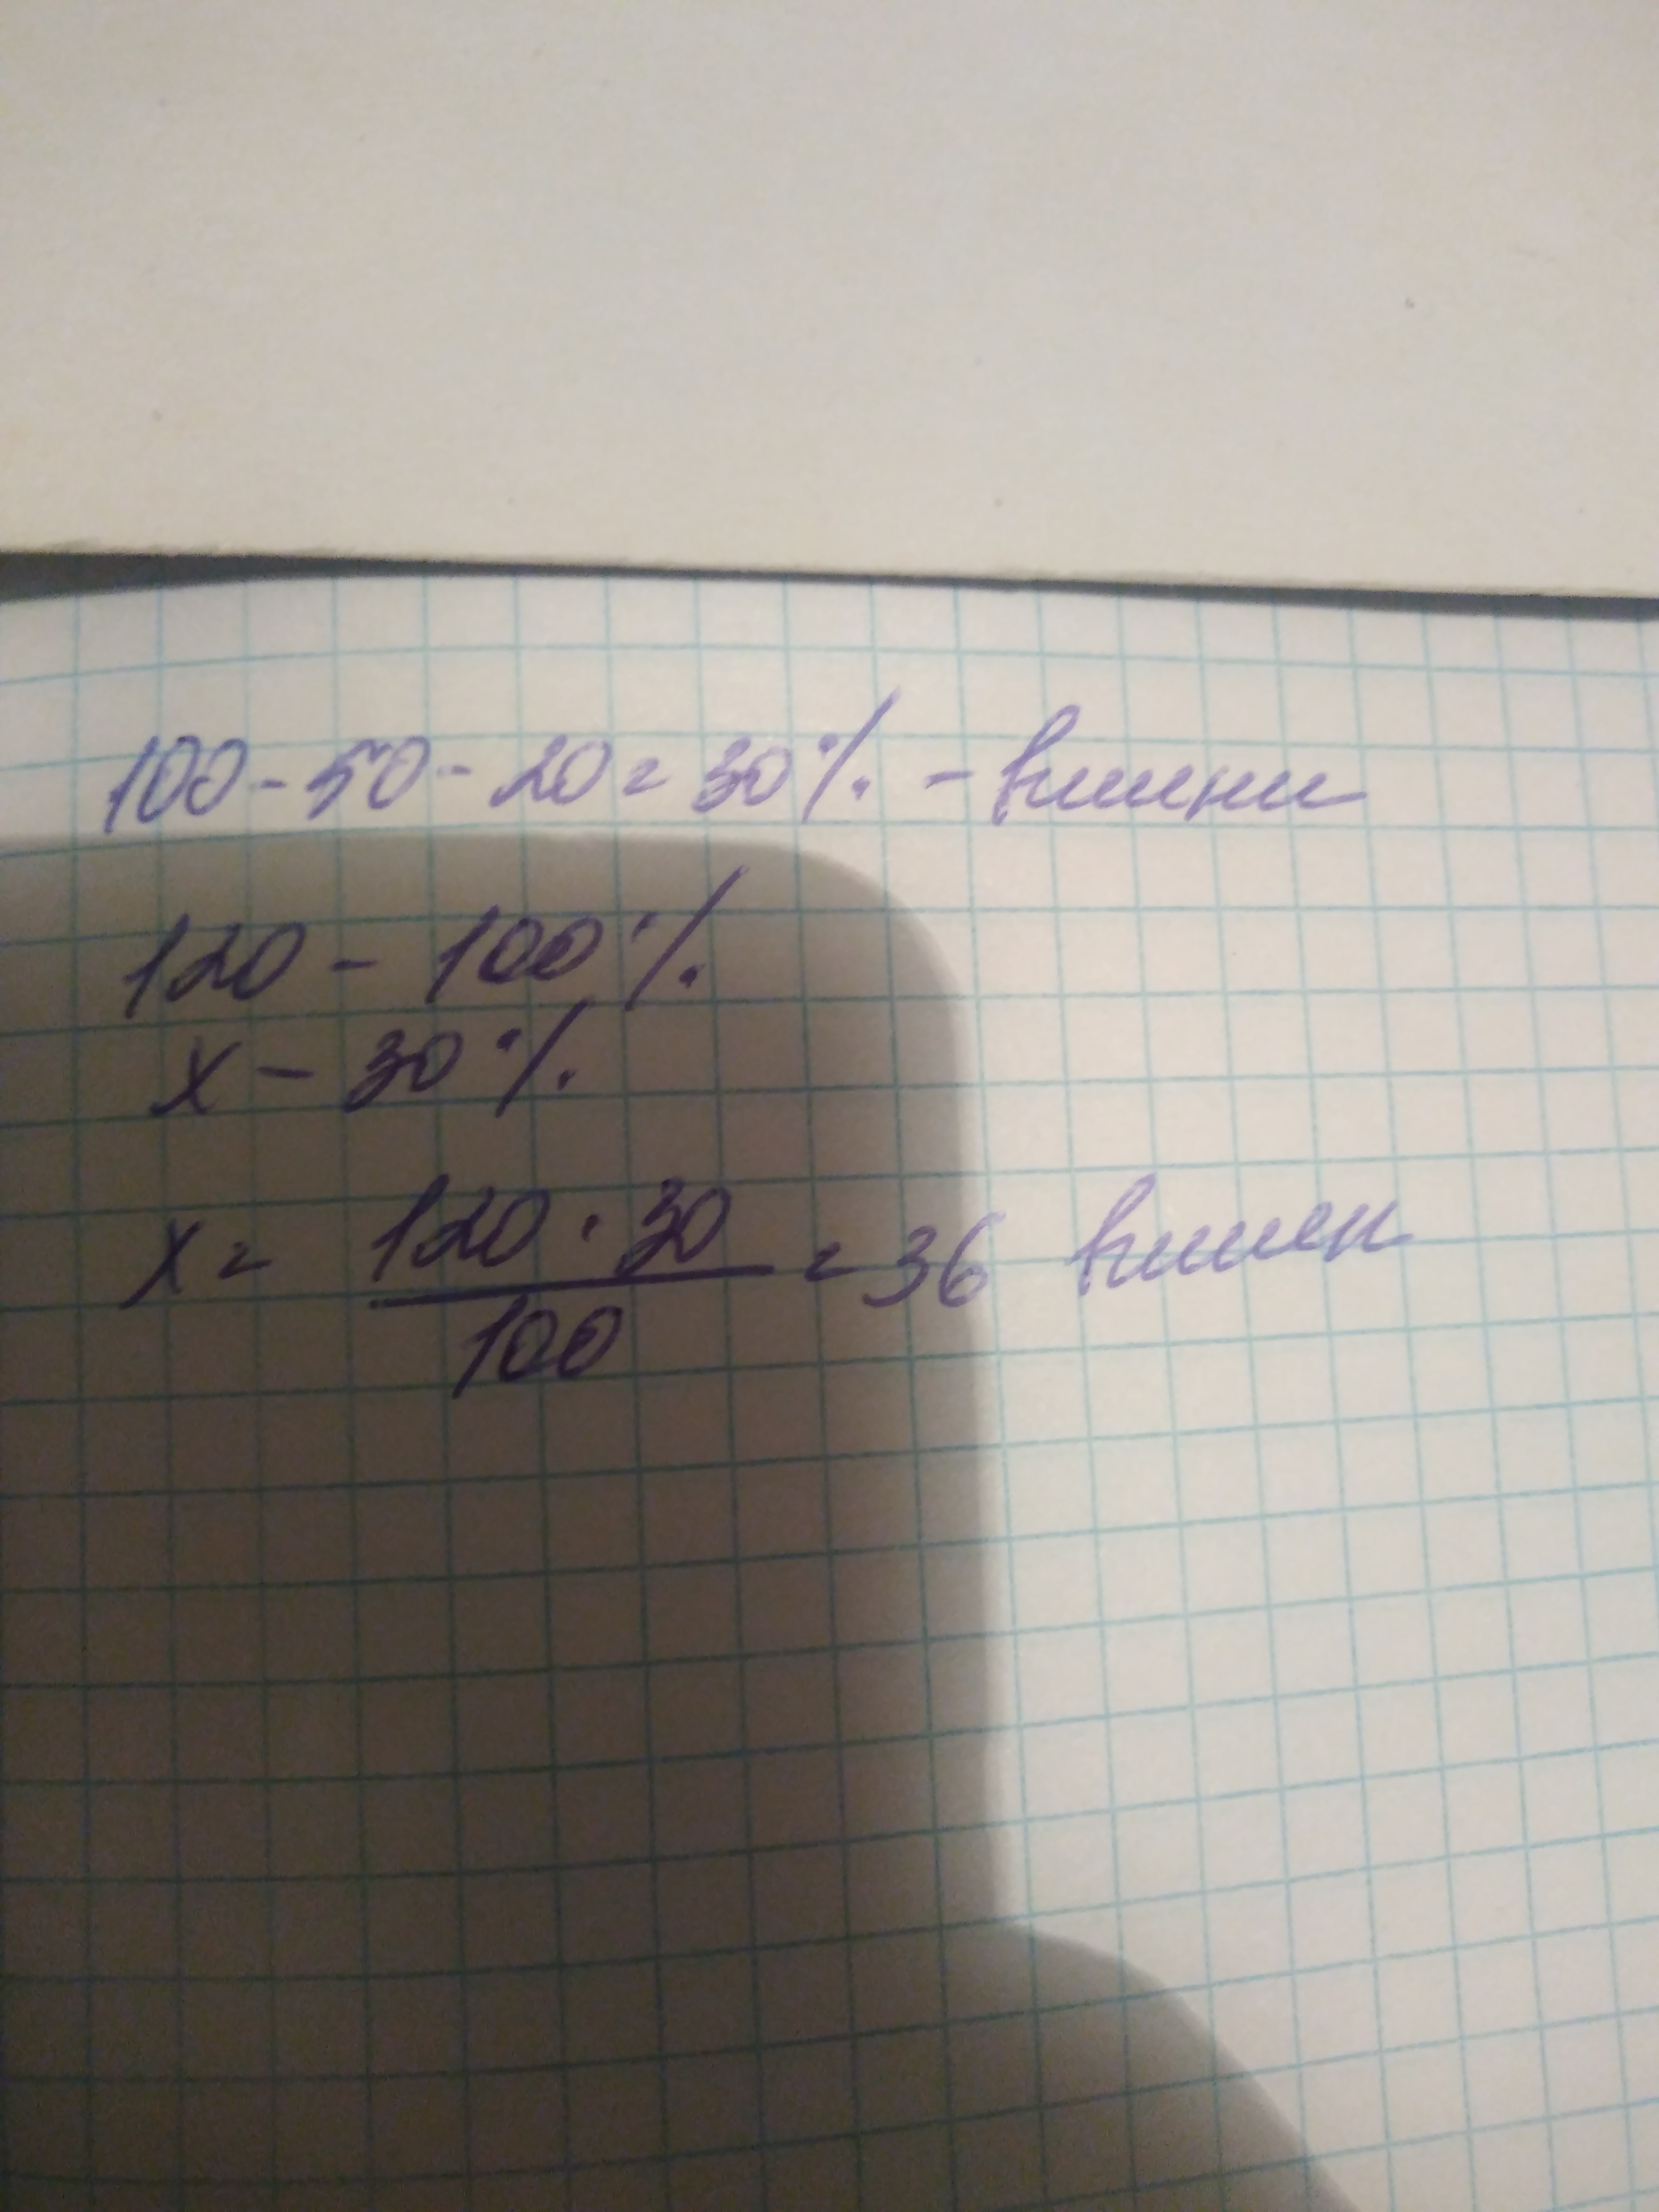 100 - 50 - 20 = 30% - вишни
120 - 100%
x - 30%
x = 120 · 30 / 100 = 36 вишен